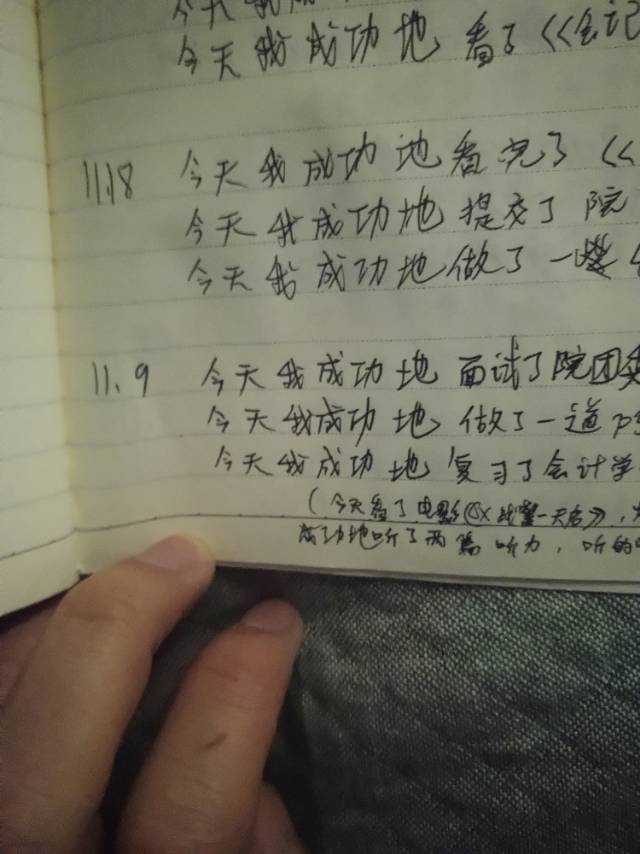 今天我成功
今天我成功地看了《会记
11.18 今天我成功地看完了《
今天我成功地提交了院
今天我成功地做了一些
11.9 今天我成功地面试了院团委
今天我成功地做了一道
今天我成功地复习了会计学
(今天看了电影《X战警一天启》,
成功地听了两篇听力,听的